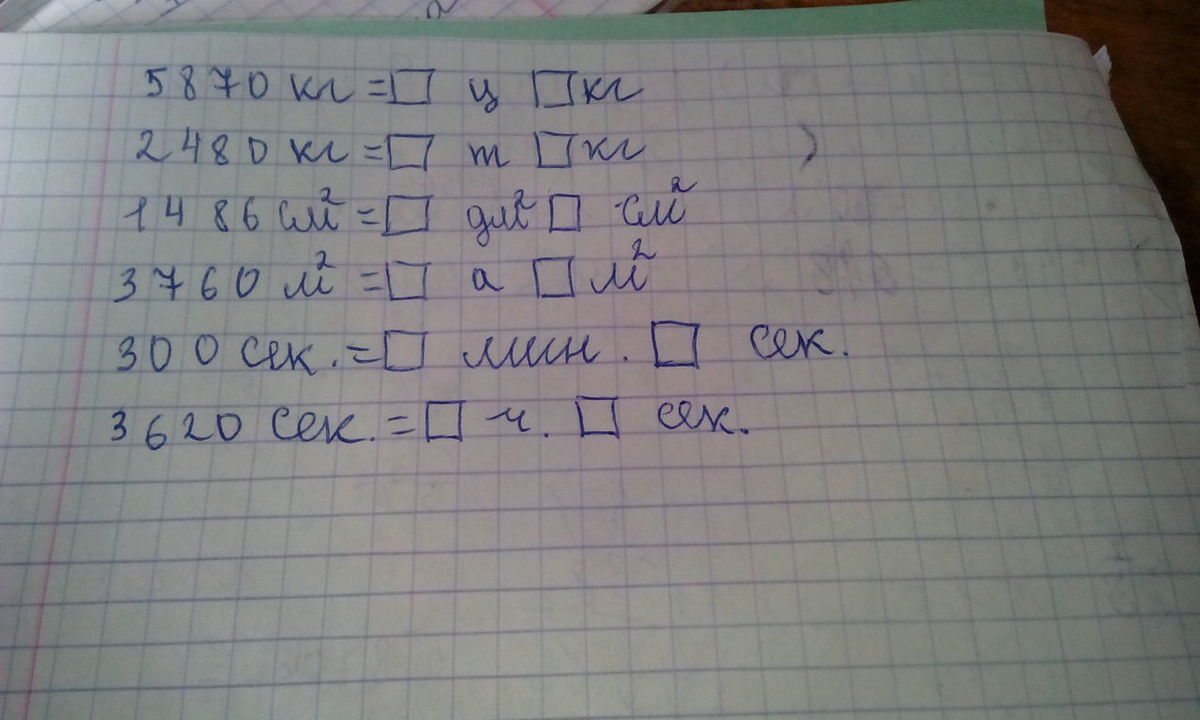 5870 кг = □ ц □ кг
2480 кг = □ т □ кг
1486 см² = □ дм² □ см²
3760 м² = □ а □ м²
300 сек. = □ мин. □ сек.
3620 сек. = □ ч. □ сек.